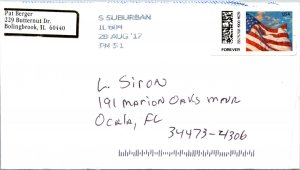 Pat Berger
229 Butternut Dr.
Bolingbrook, IL 60440
S SUBURBAN
IL 604
28 AUG '17
PM 5 1
FOREVER
USA
L. Siron
191 Marion Oaks Mnr
Ocala, FL
34473-4306